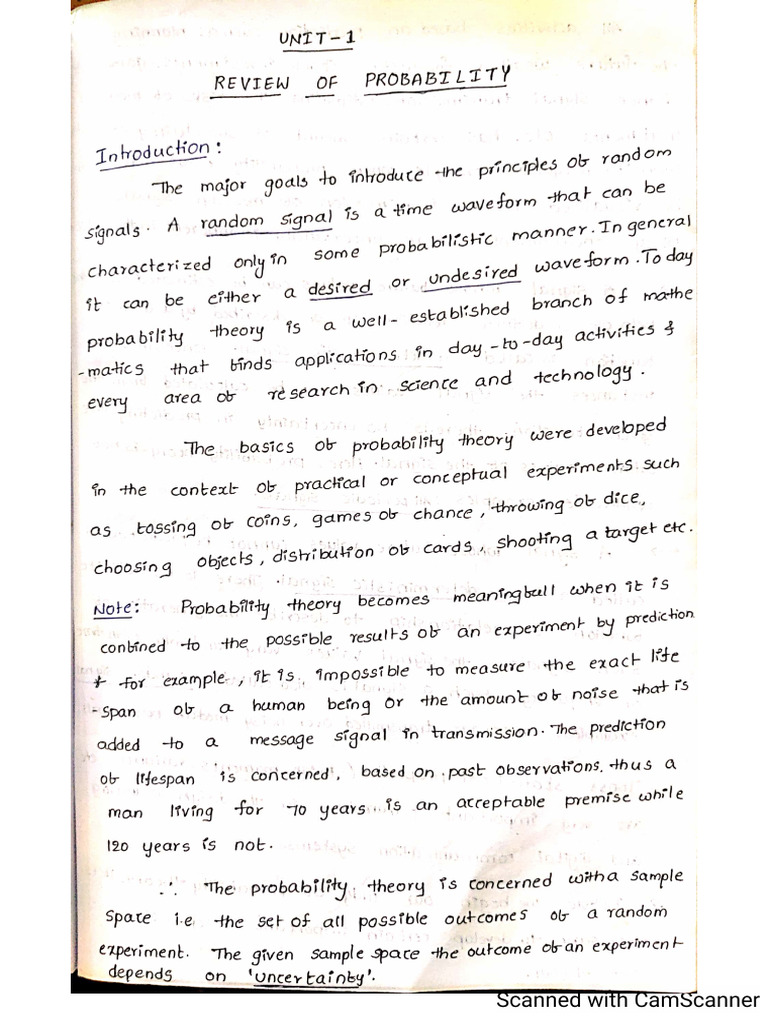 UNIT-1
REVIEW OF PROBABILITY
Introduction:
The major goals to introduce the principles of random
signals. A random signal is a time waveform that can be
characterized only in some probabilistic manner. In general
it can be either a desired or undesired waveform. To day
probability theory is a well-established branch of mathe
-matics that binds applications in day-to-day activities &
every area of research in science and technology.
The basics of probability theory were developed
in the context of practical or conceptual experiments such
as tossing of coins, games of chance, throwing of dice,
choosing objects, distribution of cards, shooting a target etc.
Note: Probability theory becomes meaningfull when it is
confined to the possible results of an experiment by prediction
* for example, it is impossible to measure the exact life
-span of a human being or the amount of noise that is
added to a message signal in transmission. The prediction
of lifespan is concerned, based on past observations. thus a
man living for 70 years is an acceptable premise while
120 years is not.
∴ The probability theory is concerned with a sample
space i.e the set of all possible outcomes of a random
experiment. The given sample space the outcome of an experiment
depends on 'uncertainty'.
Scanned with CamScanner